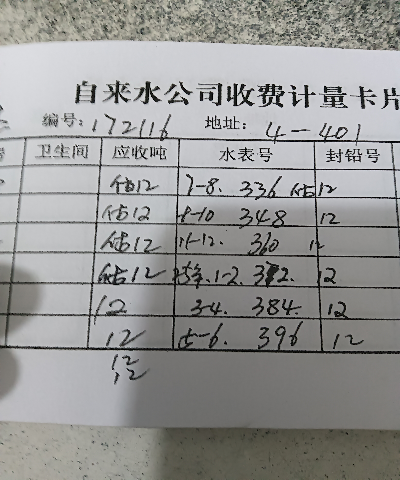 自来水公司收费计量卡片
编号:172116 地址: 4-401
卫生间 应收吨 水表号 封铅号
估12 7-8. 336 估12
估12 9-10 348 12
估12 11-12. 360 12
估12 1-2. 372. 12
12 3-4. 384. 12
12 5-6. 396 12
12
12